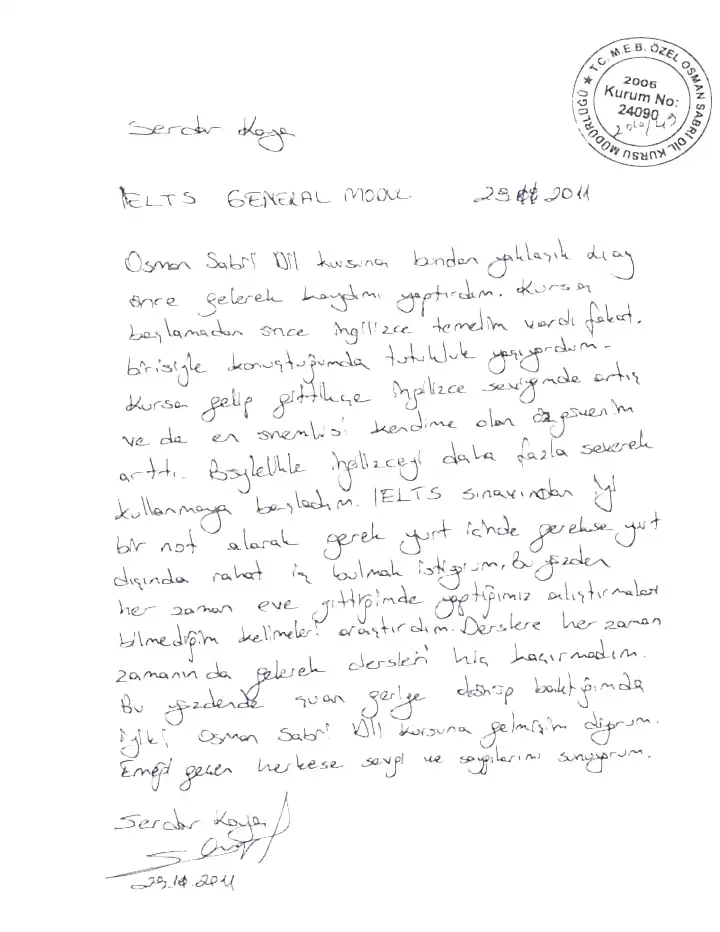 T.C. M.E.B. ÖZEL OSMAN SABRİ DİL KURSU MÜDÜRLÜĞÜ
2006
Kurum No:
24090
Serdar Kaya
IELTS GENERAL MODUL 29 2011
Osman Sabri Dil kursuna bundan yaklaşık
önce gelerek kaydımı yaptırdım. Kursa
başlamadan önce ingilizce temelim vardı fakat.
birisiyle konuştuğumda tutukluk yaşıyordum.
Kursa gelip gittikçe ingilizce seviyemde artış
ve de en önemlisi kendime olan özgüvenim
arttı. Böylelikle ingilizceyi daha fazla severek
kullanmaya başladım. IELTS sınavından iyi
bir not alarak gerek yurt içinde gerekse yurt
dışında rahat iş bulmak istiyorum. Bu yüzden
her zaman eve gittiğimde yaptığımız alıştırmaları
bilmediğim kelimeleri araştırdım. Derslere her zaman
zamanında gelerek dersleri hiç kaçırmadım.
Bu yüzdende şuan geriye dönüp baktığımda
iyiki Osman Sabri Dil kursuna gelmişim diyorum.
Emeği geçen herkese sevgi ve saygılarımı sunuyorum.
Serdar Kaya
2011